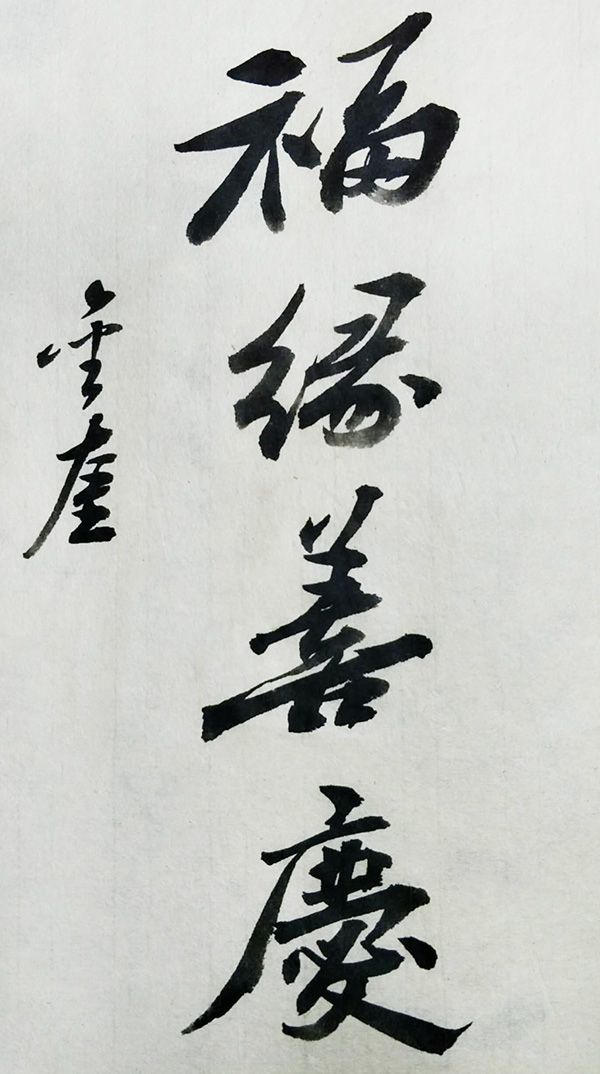 福緣善慶
雲奎